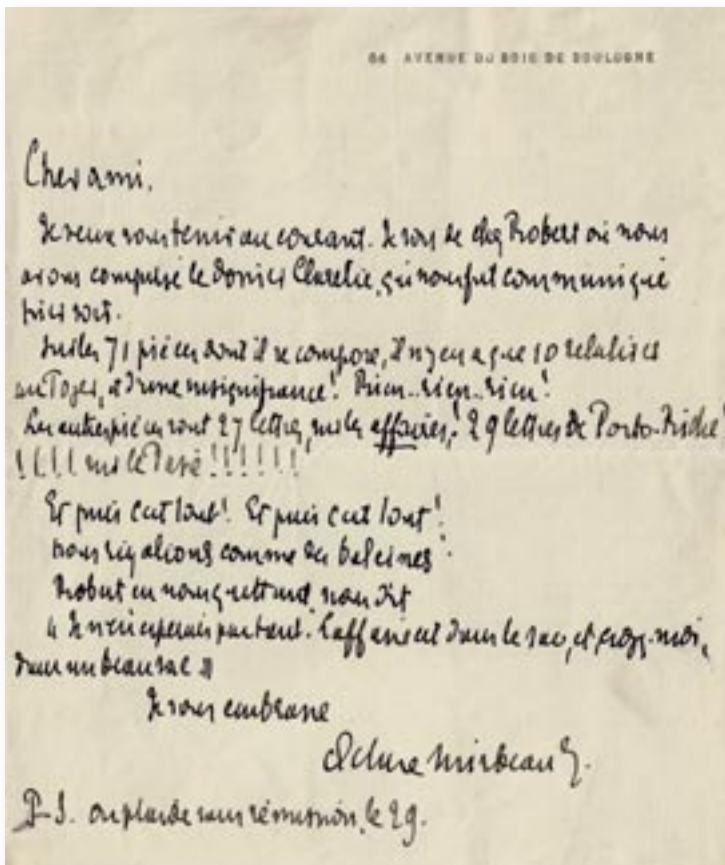 84 AVENUE DU BOIS DE BOULOGNE
Cher ami.
Je veux vous tenir au courant. Je sors de chez Robert où nous
avons compulsé le dossier Claretie, qui nous fut communiqué
hier soir.
Sur les 71 pièces dont il se compose, il n'y en a que 10 relatives
au Foyer, et d'une insignifiance! Rien.. rien.. rien!
Les autres pièces sont 27 lettres, sur les affaires! 29 lettres de Porto-Riche
!!!! sur le !!!!!!
Et puis c'est tout! Et puis c'est tout!
nous rigolions comme des baleines!
Robert en nous quittant, nous dit
« Je n'en espérais pas tant. L'affaire est dans le sac, et croyez-moi,
dans un beau sac »
Je vous embrasse
Octave Mirbeau
P-S. On plaide sans rémission, le 29.